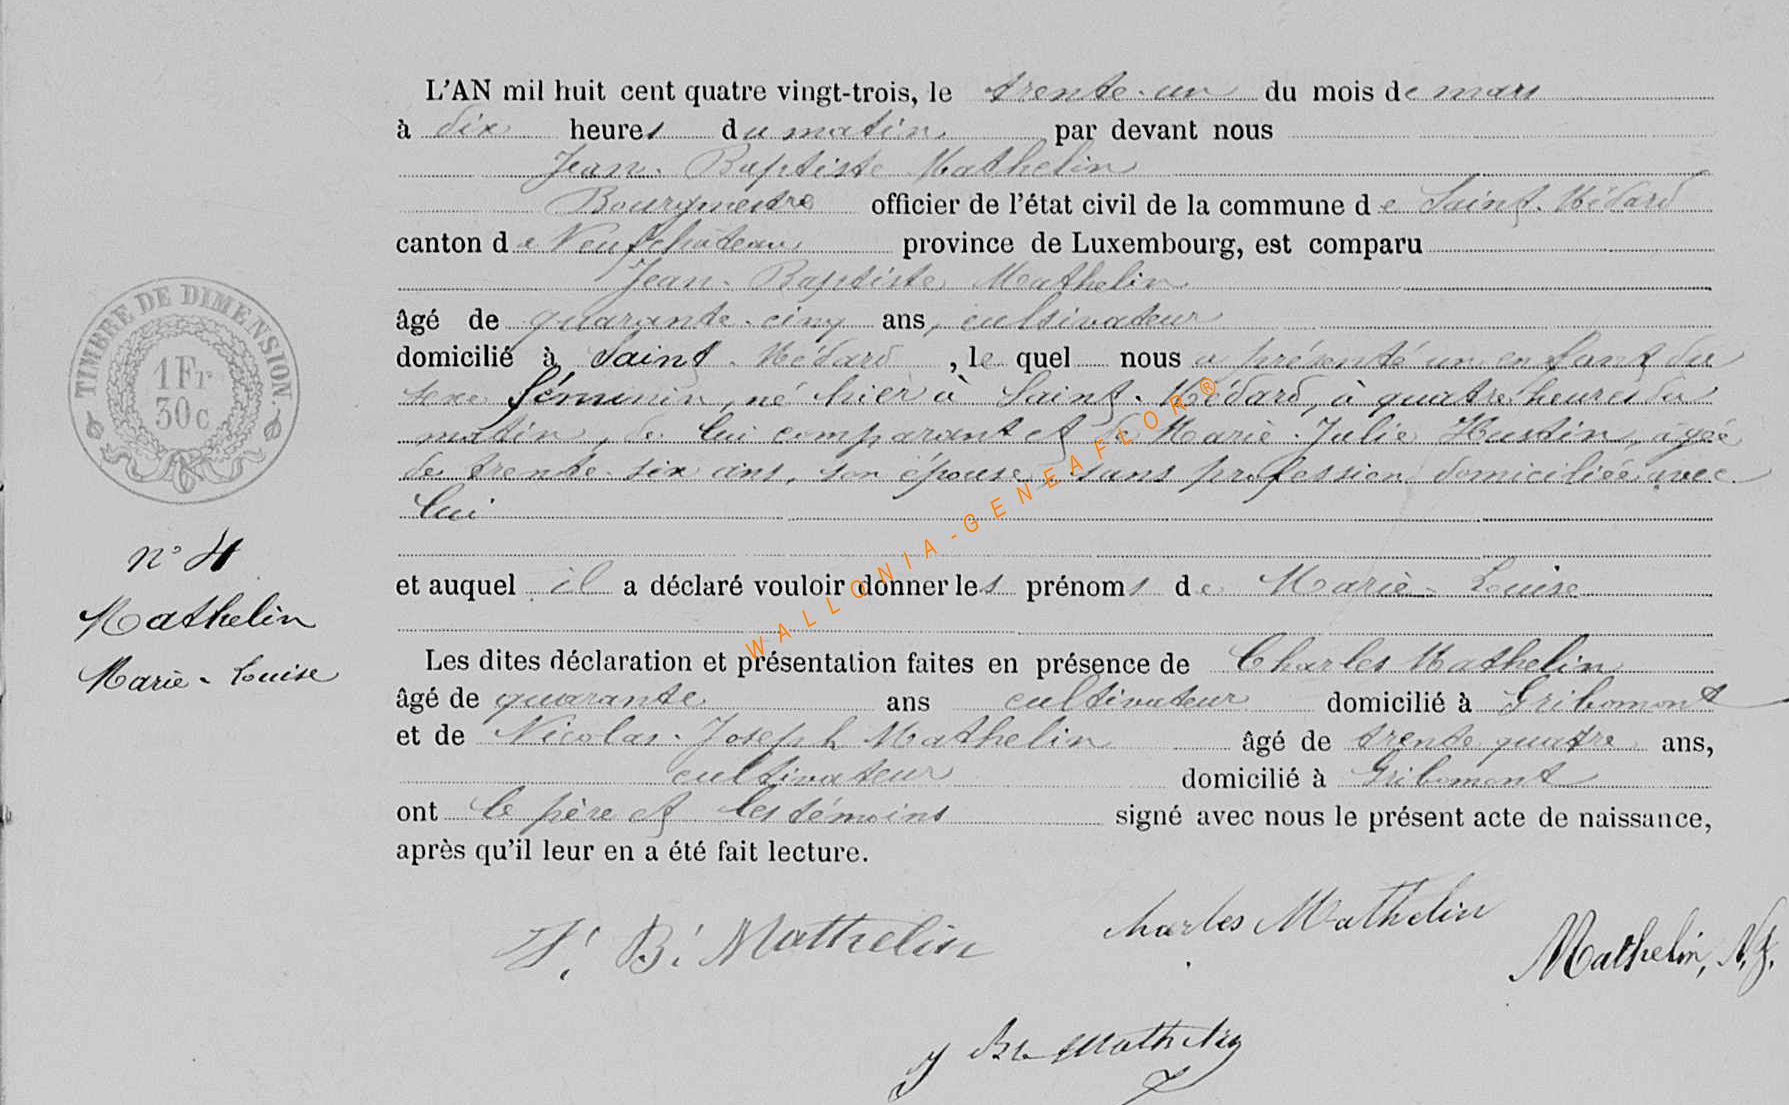 L'AN mil huit cent quatre vingt-trois, le trente-un du mois de mars
à dix heures du matin par devant nous
Jean-Baptiste Mathelin
Bourgmestre officier de l'état civil de la commune de Saint-Médard
canton de Neufchâteau province de Luxembourg, est comparu
Jean-Baptiste Mathelin
âgé de quarante-cinq ans, cultivateur
domicilié à Saint-Médard, lequel nous a présenté un enfant du
sexe féminin, né hier à Saint-Médard, à quatre heures du
matin, de lui comparant et de Marie-Julie Hustin, agée
de trente-six ans, son épouse, sans profession domiciliée avec
lui
et auquel il a déclaré vouloir donner les prénoms de Marie-Louise
Les dites déclaration et présentation faites en présence de Charles Mathelin
âgé de quarante ans cultivateur domicilié à Gribomont
et de Nicolas-Joseph Mathelin âgé de trente quatre ans,
cultivateur domicilié à Gribomont
ont le père et les témoins signé avec nous le présent acte de naissance,
après qu'il leur en a été fait lecture.
TIMBRE DE DIMENSION
1 Fr
30 c
n° 4
Mathelin
Marie-Louise
J. B. Mathelin
Charles Mathelin
Mathelin, N. J.
J Bte Mathelin
WALLONIA-GENEAFLOR®